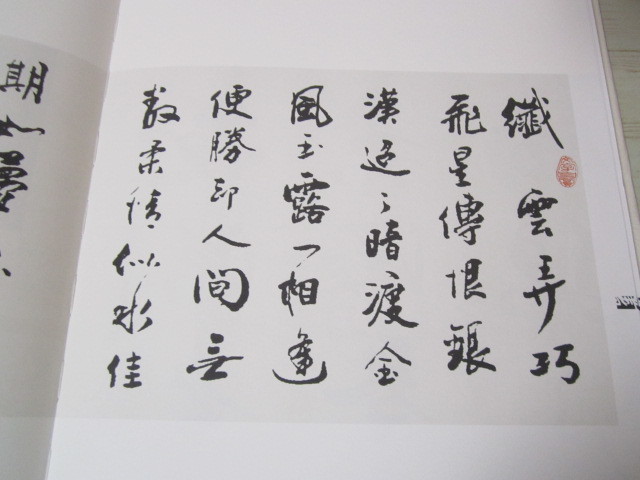 纖雲弄巧
飛星傳恨銀
漢迢〻暗渡金
風玉露一相逢
便勝却人間無
數柔情似水佳
期如夢